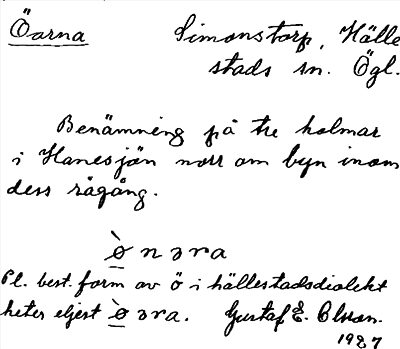 Öarna Simonstorp, Hälle
stads sn. Ögl.
Benämning på tre holmar
i Hanesjön norr om byn inom
dess rågång.
ø̀nəra
Pl. best. form av ö i hällestadsdialekt
heter eljest ø̀əra. Gustaf E. Olsson.
1927